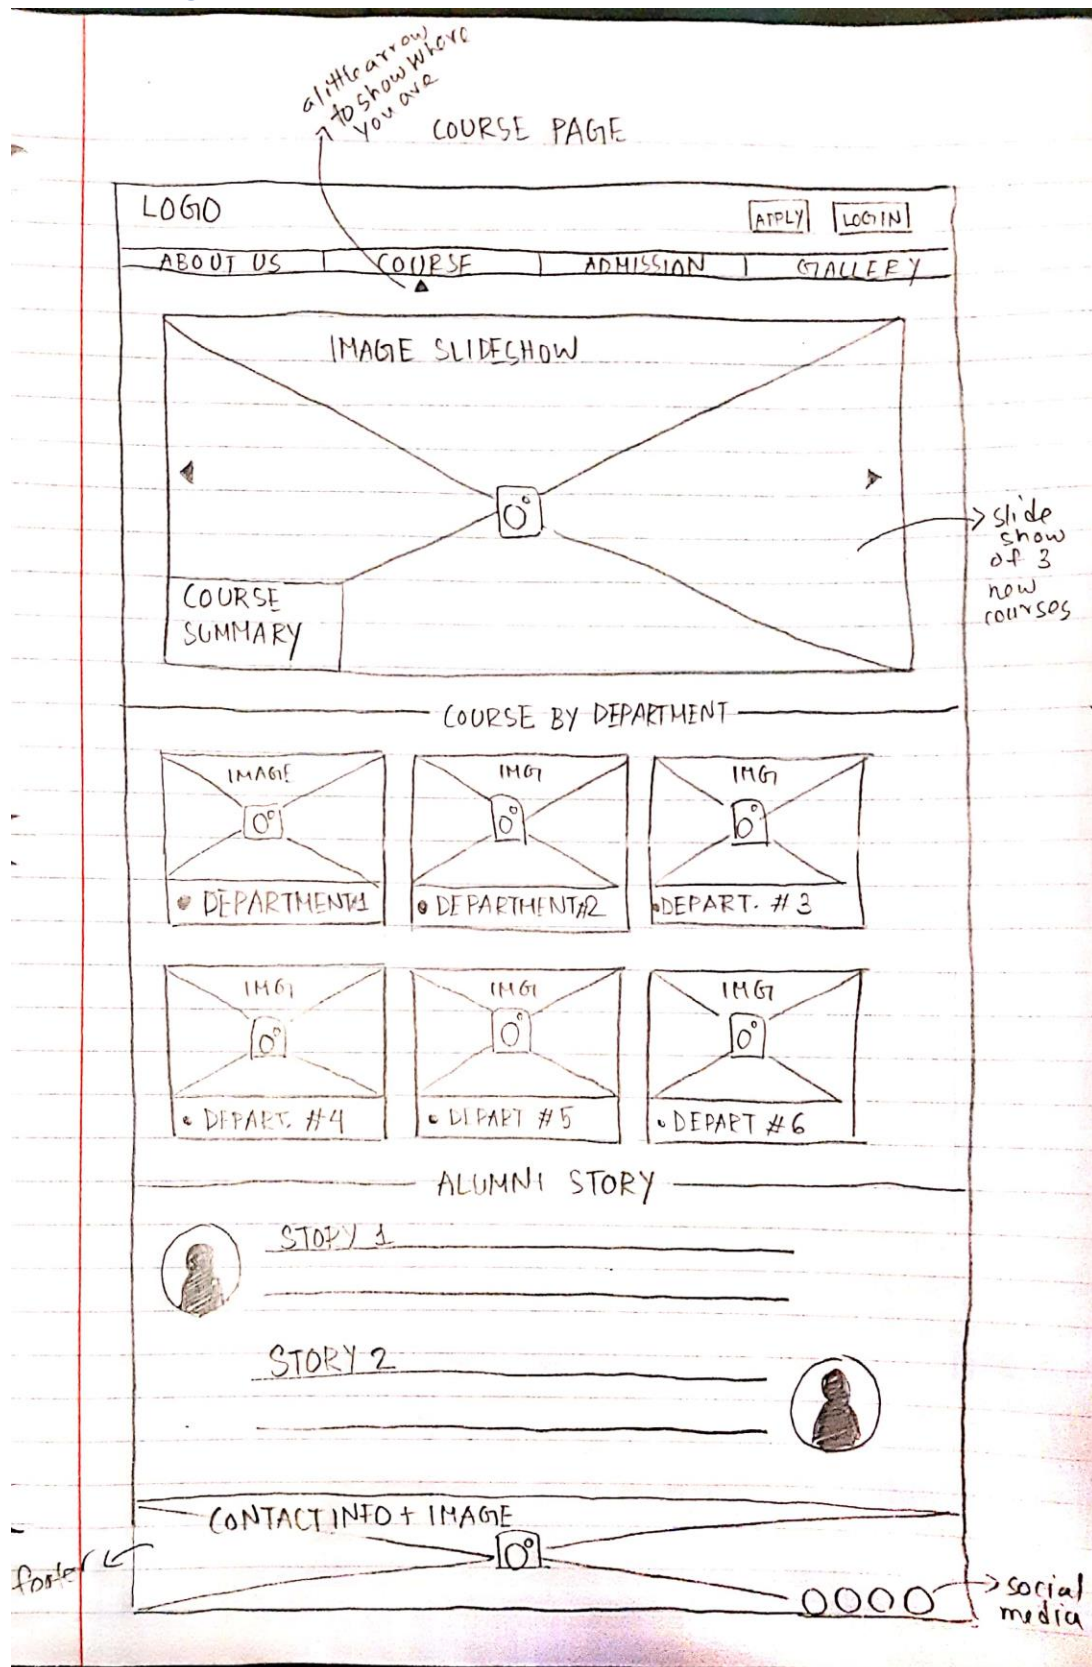 a little arrow
to show where
you are
COURSE PAGE
LOGO
APPLY
LOGIN
ABOUT US
COURSE
ADMISSION
GALLERY
IMAGE SLIDESHOW
slide
show
of 3
new
courses
COURSE
SUMMARY
COURSE BY DEPARTMENT
IMAGE
IMG
IMG
DEPARTMENT#1
DEPARTMENT#2
DEPART. #3
IMG
IMG
IMG
DEPART. #4
DEPART #5
DEPART #6
ALUMNI STORY
STORY 1
STORY 2
CONTACT INFO + IMAGE
footer
social
media